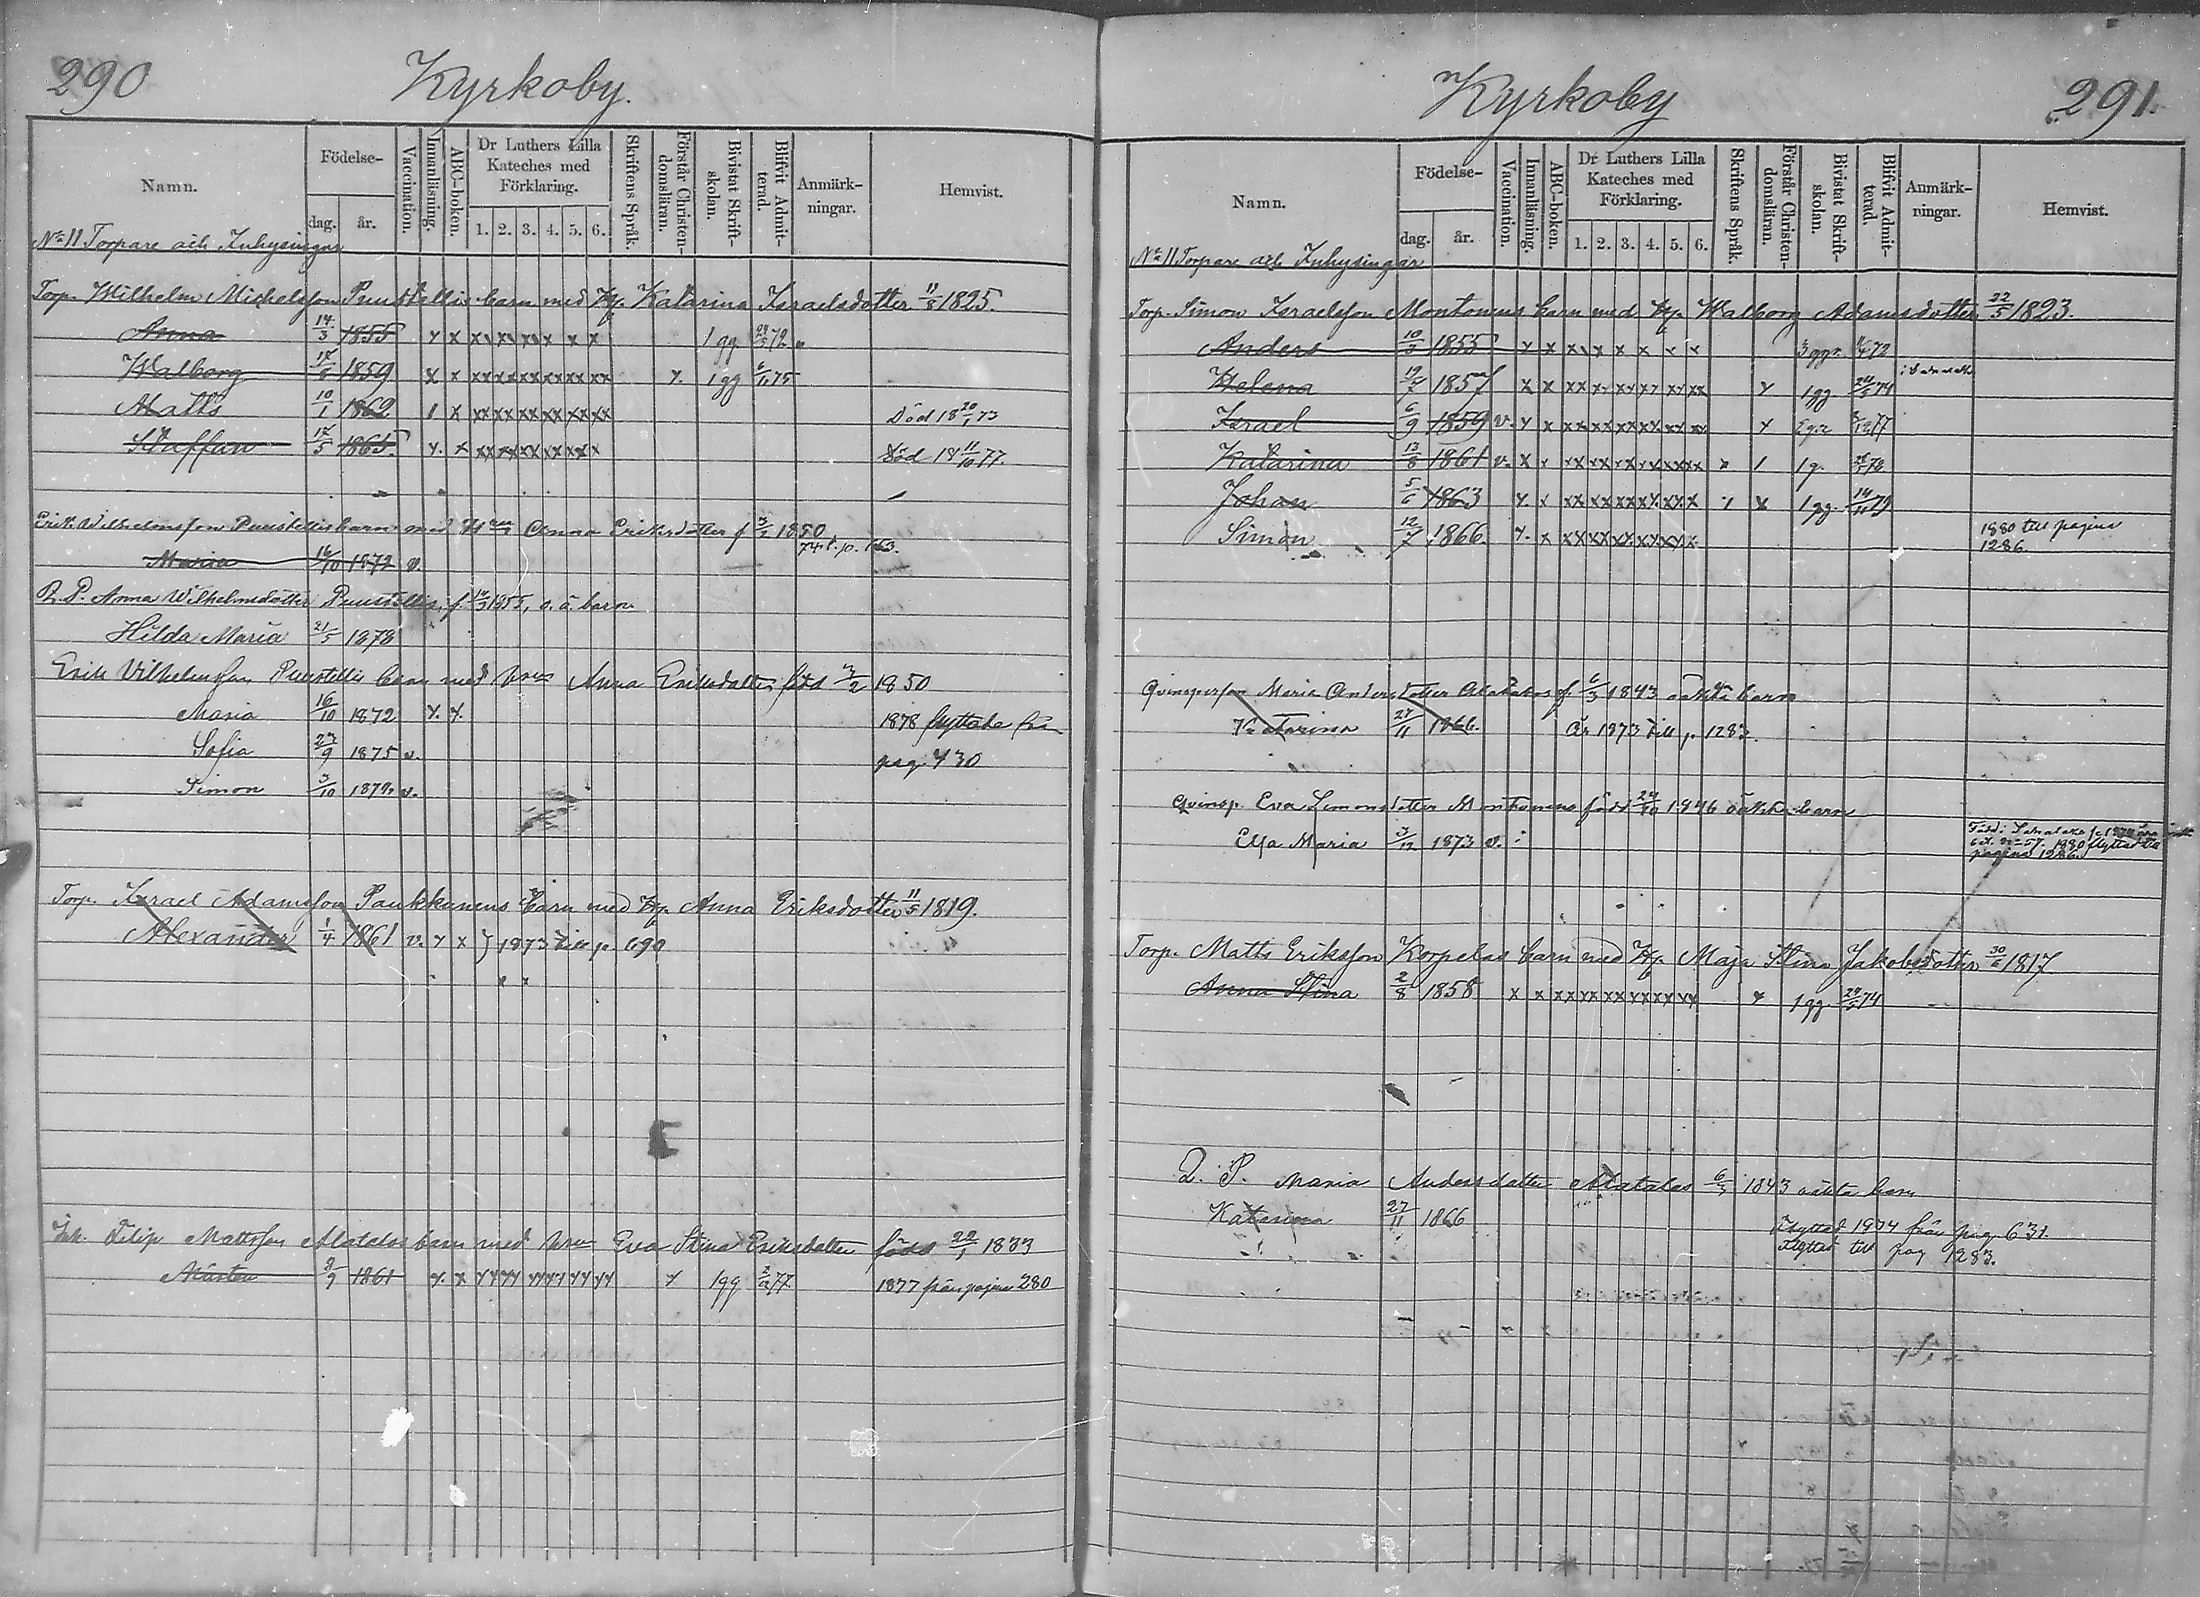 290
Kyrkoby.
Namn.
Födelse-
dag.
år.
Vaccination.
Innanläsning.
ABC-boken.
Dr Luthers Lilla
Kateches med
Förklaring.
1. 2. 3. 4. 5. 6.
Skriftens Språk.
Förstår Christen-
domsläran.
Bivistat Skrift-
skolan.
Blifvit Admit-
terad.
Anmärk-
ningar.
Hemvist.
No 11 Torpare och Inhysingar
Torp. Wilhelm Michelsson Puustellis barn med H. Katarina Israelsdotter 11/8 1825.
Anna 14/3 1855 x x xx xx x x x 1 gg 24/5 72
Walborg 1859 x x xx xx xx xx xx xx x. 1 gg 6/6 75
Matts 10/1 1862 x xx xx xx xx xx xx Död 18 20/1 73
Staffan 17/5 1865. x. x xx xx xx xx xx x Död 18 11/10 77.
Erik Wilhelmsson Puustellis barn med Anna Eriksdotter f 3/2 1850
74 t. p. 163.
Maria 16/10 1872 v.
Q. P. Anna Wilhelmsdotter Puustellis, f. 14/3 1855, o. ä. barn
Hilda Maria 21/5 1878
Erik Vilhelmsson Puustellis barn med hru Anna Eriksdotter född 3/2 1850
Maria 16/10 1872 x. x. 1878 flyttade från
Sofia 23/9 1875 v. pag. 430
Simon 3/10 1878 v.
Torp. Israel Adamsson Paukkunens barn med H. Anna Eriksdotter 11/5 1819.
Alexander 1/4 1861 v. x x } 1873 till p. 690
Inh. Filip Mattsson Alatalos barn med hru Eva Stina Eriksdotter född 22/1 1833
Mårten 8/9 1861 x. x xx xx xx xx xx xx x 1 gg 77 1877 från pagina 280
Kyrkoby
291.
Namn.
Födelse-
dag.
år.
Vaccination.
Innanläsning.
ABC-boken.
Dr Luthers Lilla
Kateches med
Förklaring.
1. 2. 3. 4. 5. 6.
Skriftens Språk.
Förstår Christen-
domsläran.
Bivistat Skrift-
skolan.
Blifvit Admit-
terad.
Anmärk-
ningar.
Hemvist.
No 11 Torpare och Inhysingar
Torp. Simon Israelsson Montonens barn med H. Walborg Adamsdotter 22/5 1823.
Anders 10/3 1855 x x xx x x x x x 3 ggr. 72
Helena 1857 x x xx xx xx xx xx xx x 1 gg 24/5 74
Israel 6/9 1859 v. x x xx xx xx xx xx xx x 2 77
Katarina 13/8 1861 v. x x xx xx xx xx xx xx 1 g. 78
Johan 5/6 1863 x. x xx xx xx xx xx x x 1 gg. 14/11 79
Simon 12/7 1866. x. x xx xx xx xx xx x 1880 till pagina
1286
Qvinsperson Maria Andersdotter Alatalos f. 6/3 1843 oäkta barn
Katarina 27/11 1866. År 1873 till p. 1283.
Qvinsp. Eva Simonsdotter Montonens född 24/10 1846 oäkta barn
Elsa Maria 3/12 1873 v.
1880 flyttad till
pagina 1286
Torp. Matts Eriksson Korpelas barn med H. Maja Stina Jakobsdotter 30/6 1817
Anna Stina 2/8 1858 x x xx xx xx xx xx xx x 1 gg 24/5 74
Q. P. Maria Andersdotter Alatalos 6/3 1843 oäkta barn
Katarina 27/11 1866 Flyttad 1874 från pag. 631.
Flyttad till pag 1283.